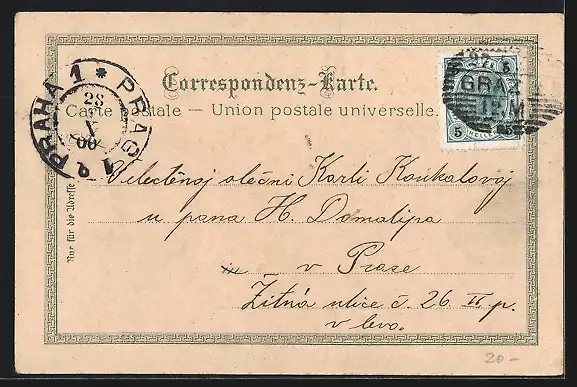 Correspondenz-Karte.
Carte postale — Union postale universelle.
PRAHA 1 * PRAG 1
23
V
00
5 5
GRAZ
12.M
5 HELLER 5
Nur für die Adresse
Velectěnoj slečni Karli Koukalovoj
u pana H. Domalípa
v Praze
Žitná ulice č. 26 II p.
v levo.
20-